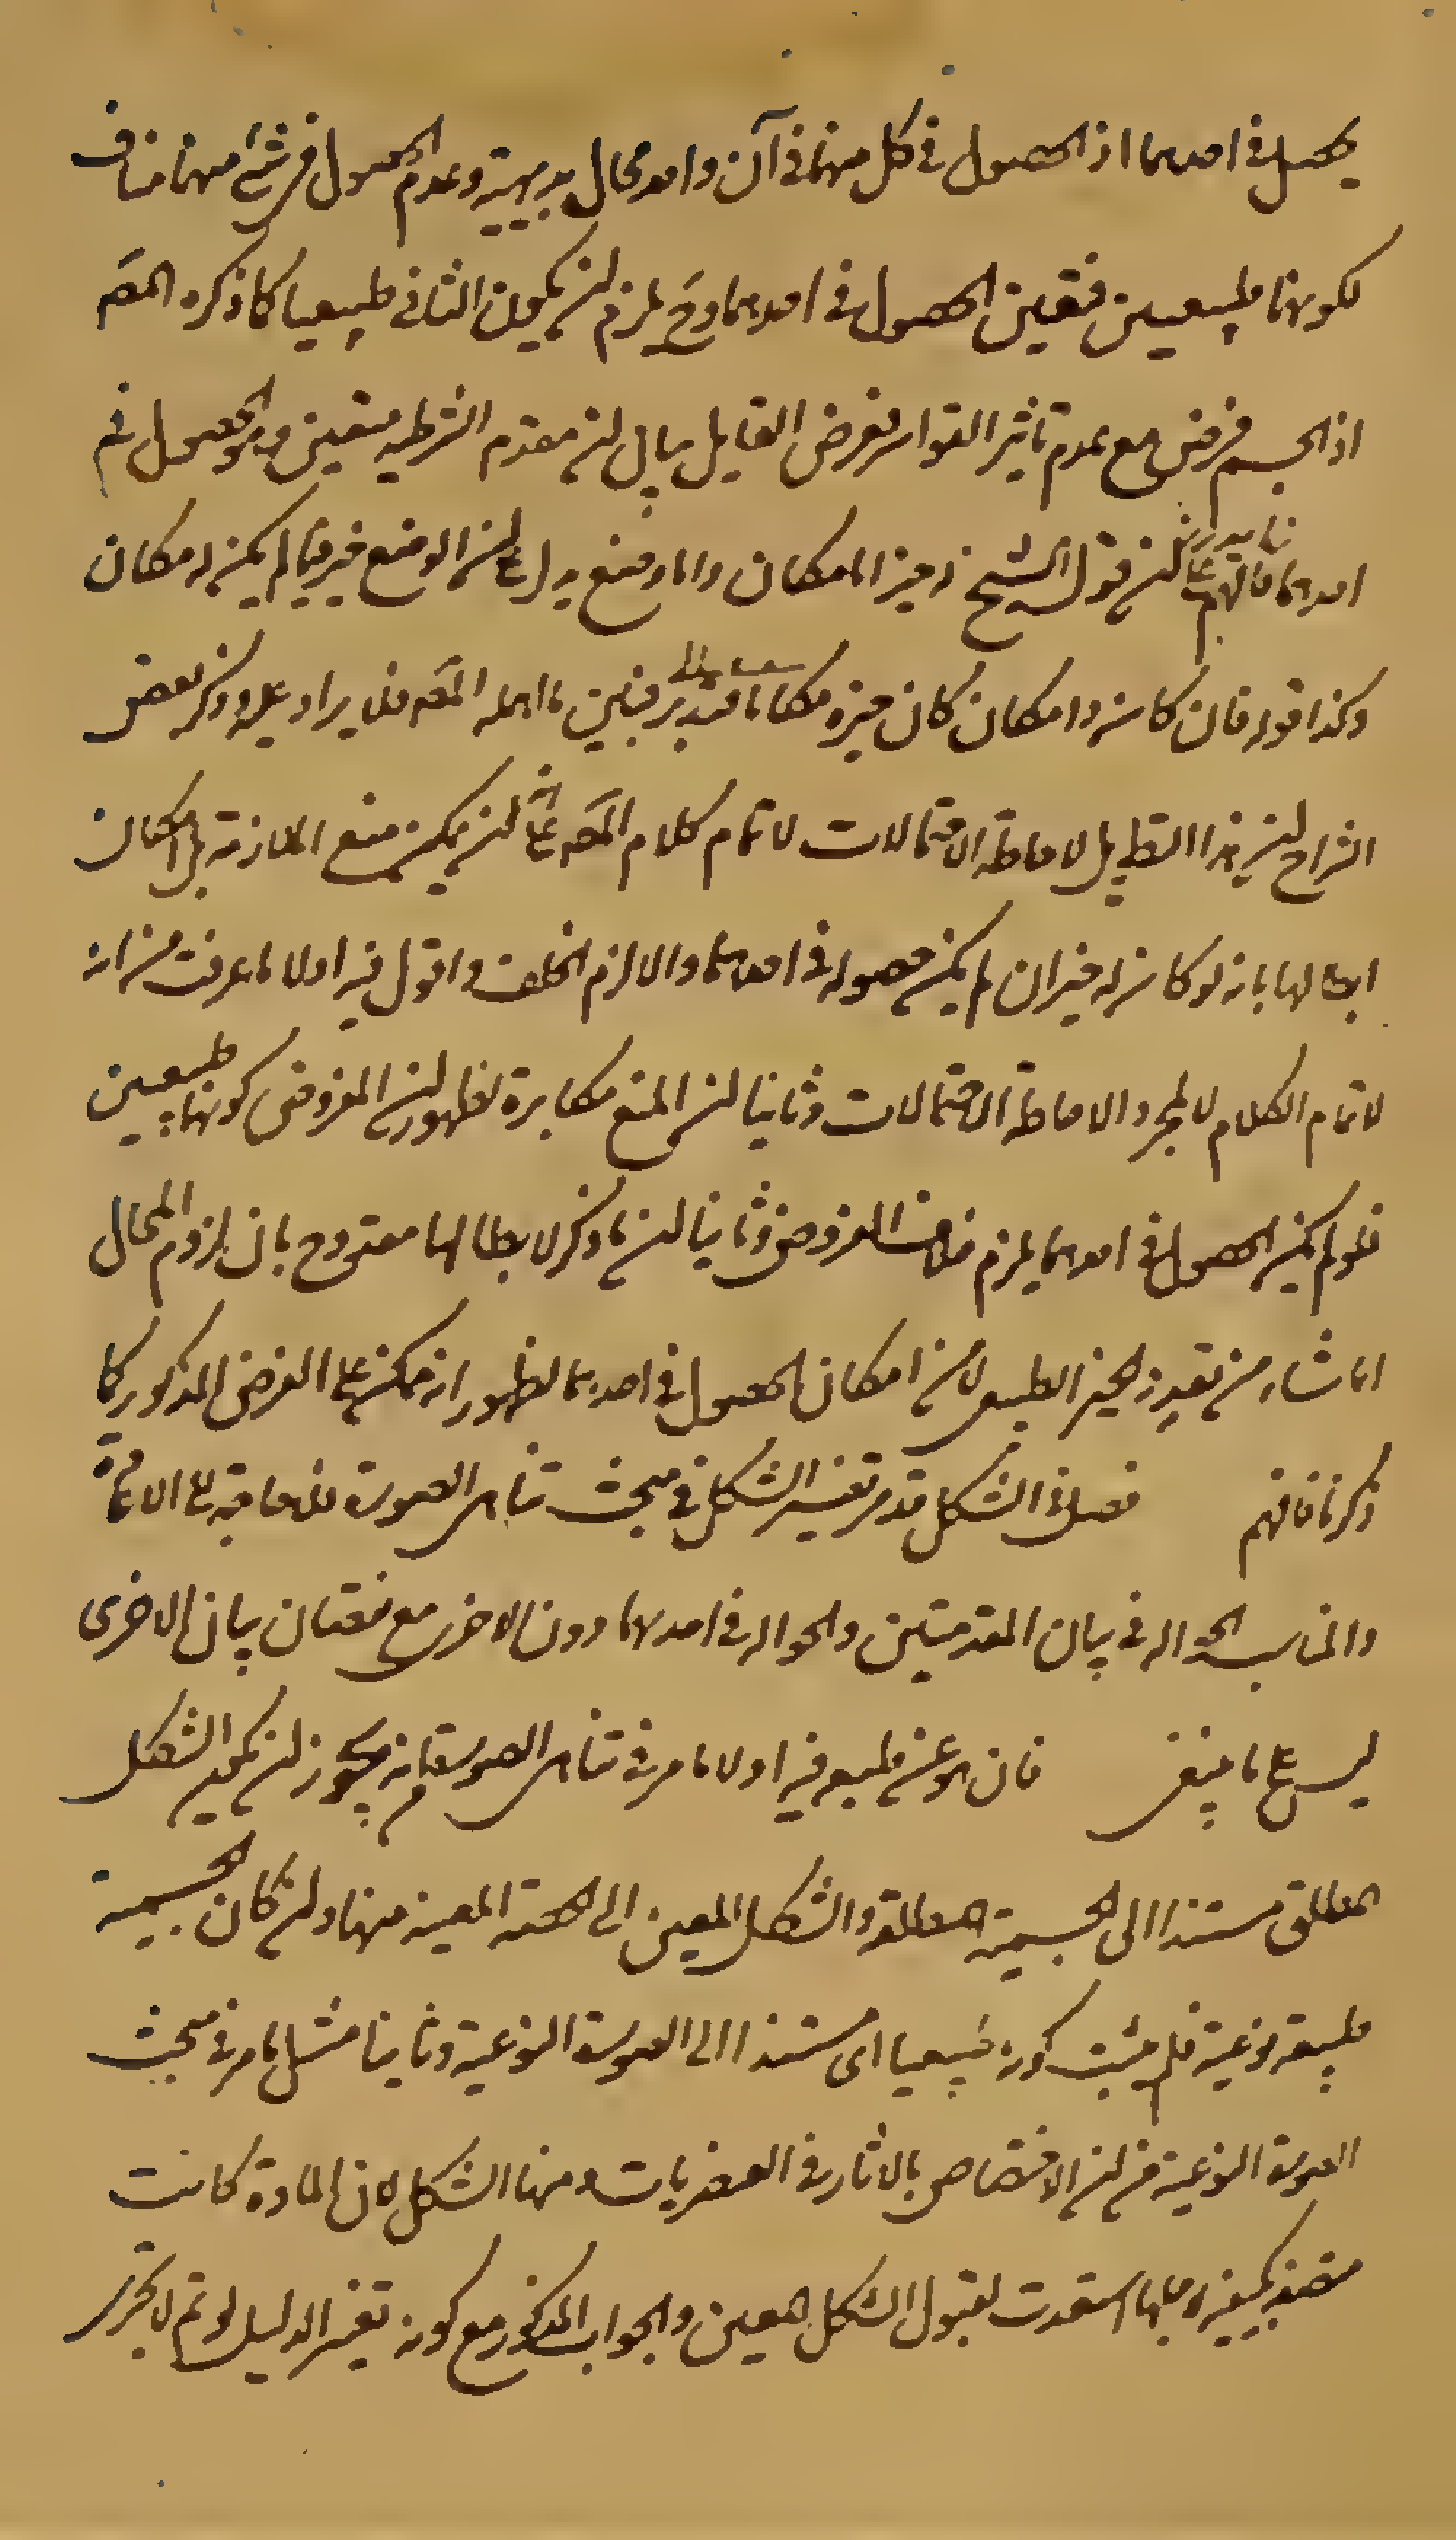 يحصل في احدهما اذ الحصول في كل منهما في آن واحد محال بديهية وعدم الحصول في شئ منهما مناف
لكونهما طبيعيين فتعين الحصول في احدهما وح يلزم ان يكون الثاني طبيعيا كما ذكره المص
اذ الجسم فرض مع عدم تاثير القواسر فغرض القايل بيان ان مقدم الشرطية متعين وهو الحصول في
احدهما فافهم على ان قول الشيخ ذ حيز اما مكان واما وضع يدل على ان الوضع حيز فيما لم يكن له مكان
وكذا قوله فان كان ذا مكان كان حيزه مكانا فتدبر فتبين ما اهمله المص فلا يراد عليه وذكر بعض
الشراح ان هذا التطويل لاحاطة الاحتمالات لا تمام كلام المص غايته ان يمكن منع الملازمة بل امكان
ابطالها بانه لو كان له حيزان لم يكن حصوله في احدهما والا لزم الخلف واقول فيه اولا ما عرفت من انه
لاتمام الكلام لا لمجرد الاحاطة الاحتمالات وثانيا ان المنع مكابرة لظهور ان المفروض كونهما طبيعيين
فلو لم يكن الحصول في احدهما يلزم خلاف المفروض وثانيا ان ما ذكر لابطالها مقدوح بان لزوم المحال
انما نشاء من تعدد الحيز الطبيعي لا من امكان الحصول في احدهما لظهور انه ممكن على الفرض المذكور كما
ذكرنا فافهم فصل في الشكل قد مر تفسير الشكل في مبحث تناهي الصورة فلا حاجة الى الاعادة
والمناسب الحواله في بيان المقدمتين والحواله في احدهما دون الاخرى مع نقصان بيان الاخرى
ليس على ما ينبغي فان هو عن طبعه فيه اولا ما مر في تناهي الصورة من انه يجوز ان يكون الشكل
المطلق مستندا الى الجسمية المطلقة والشكل المعين الى الحصة المعينة منها وان كان الجسمية
طبيعة نوعية فلم يثبت كونه طبيعيا اي مستندا الى الصورة النوعية وثانيا مثل ما مر في مبحث
الصورة النوعية من ان الاختصاص بالاثار في العنصريات ومنها الشكل لان المادة كانت
متصفة بكيفية لاجلها استعدت لقبول الشكل المعين والجواب المذكور مع كونه تغيير الدليل لو تم لا يجري